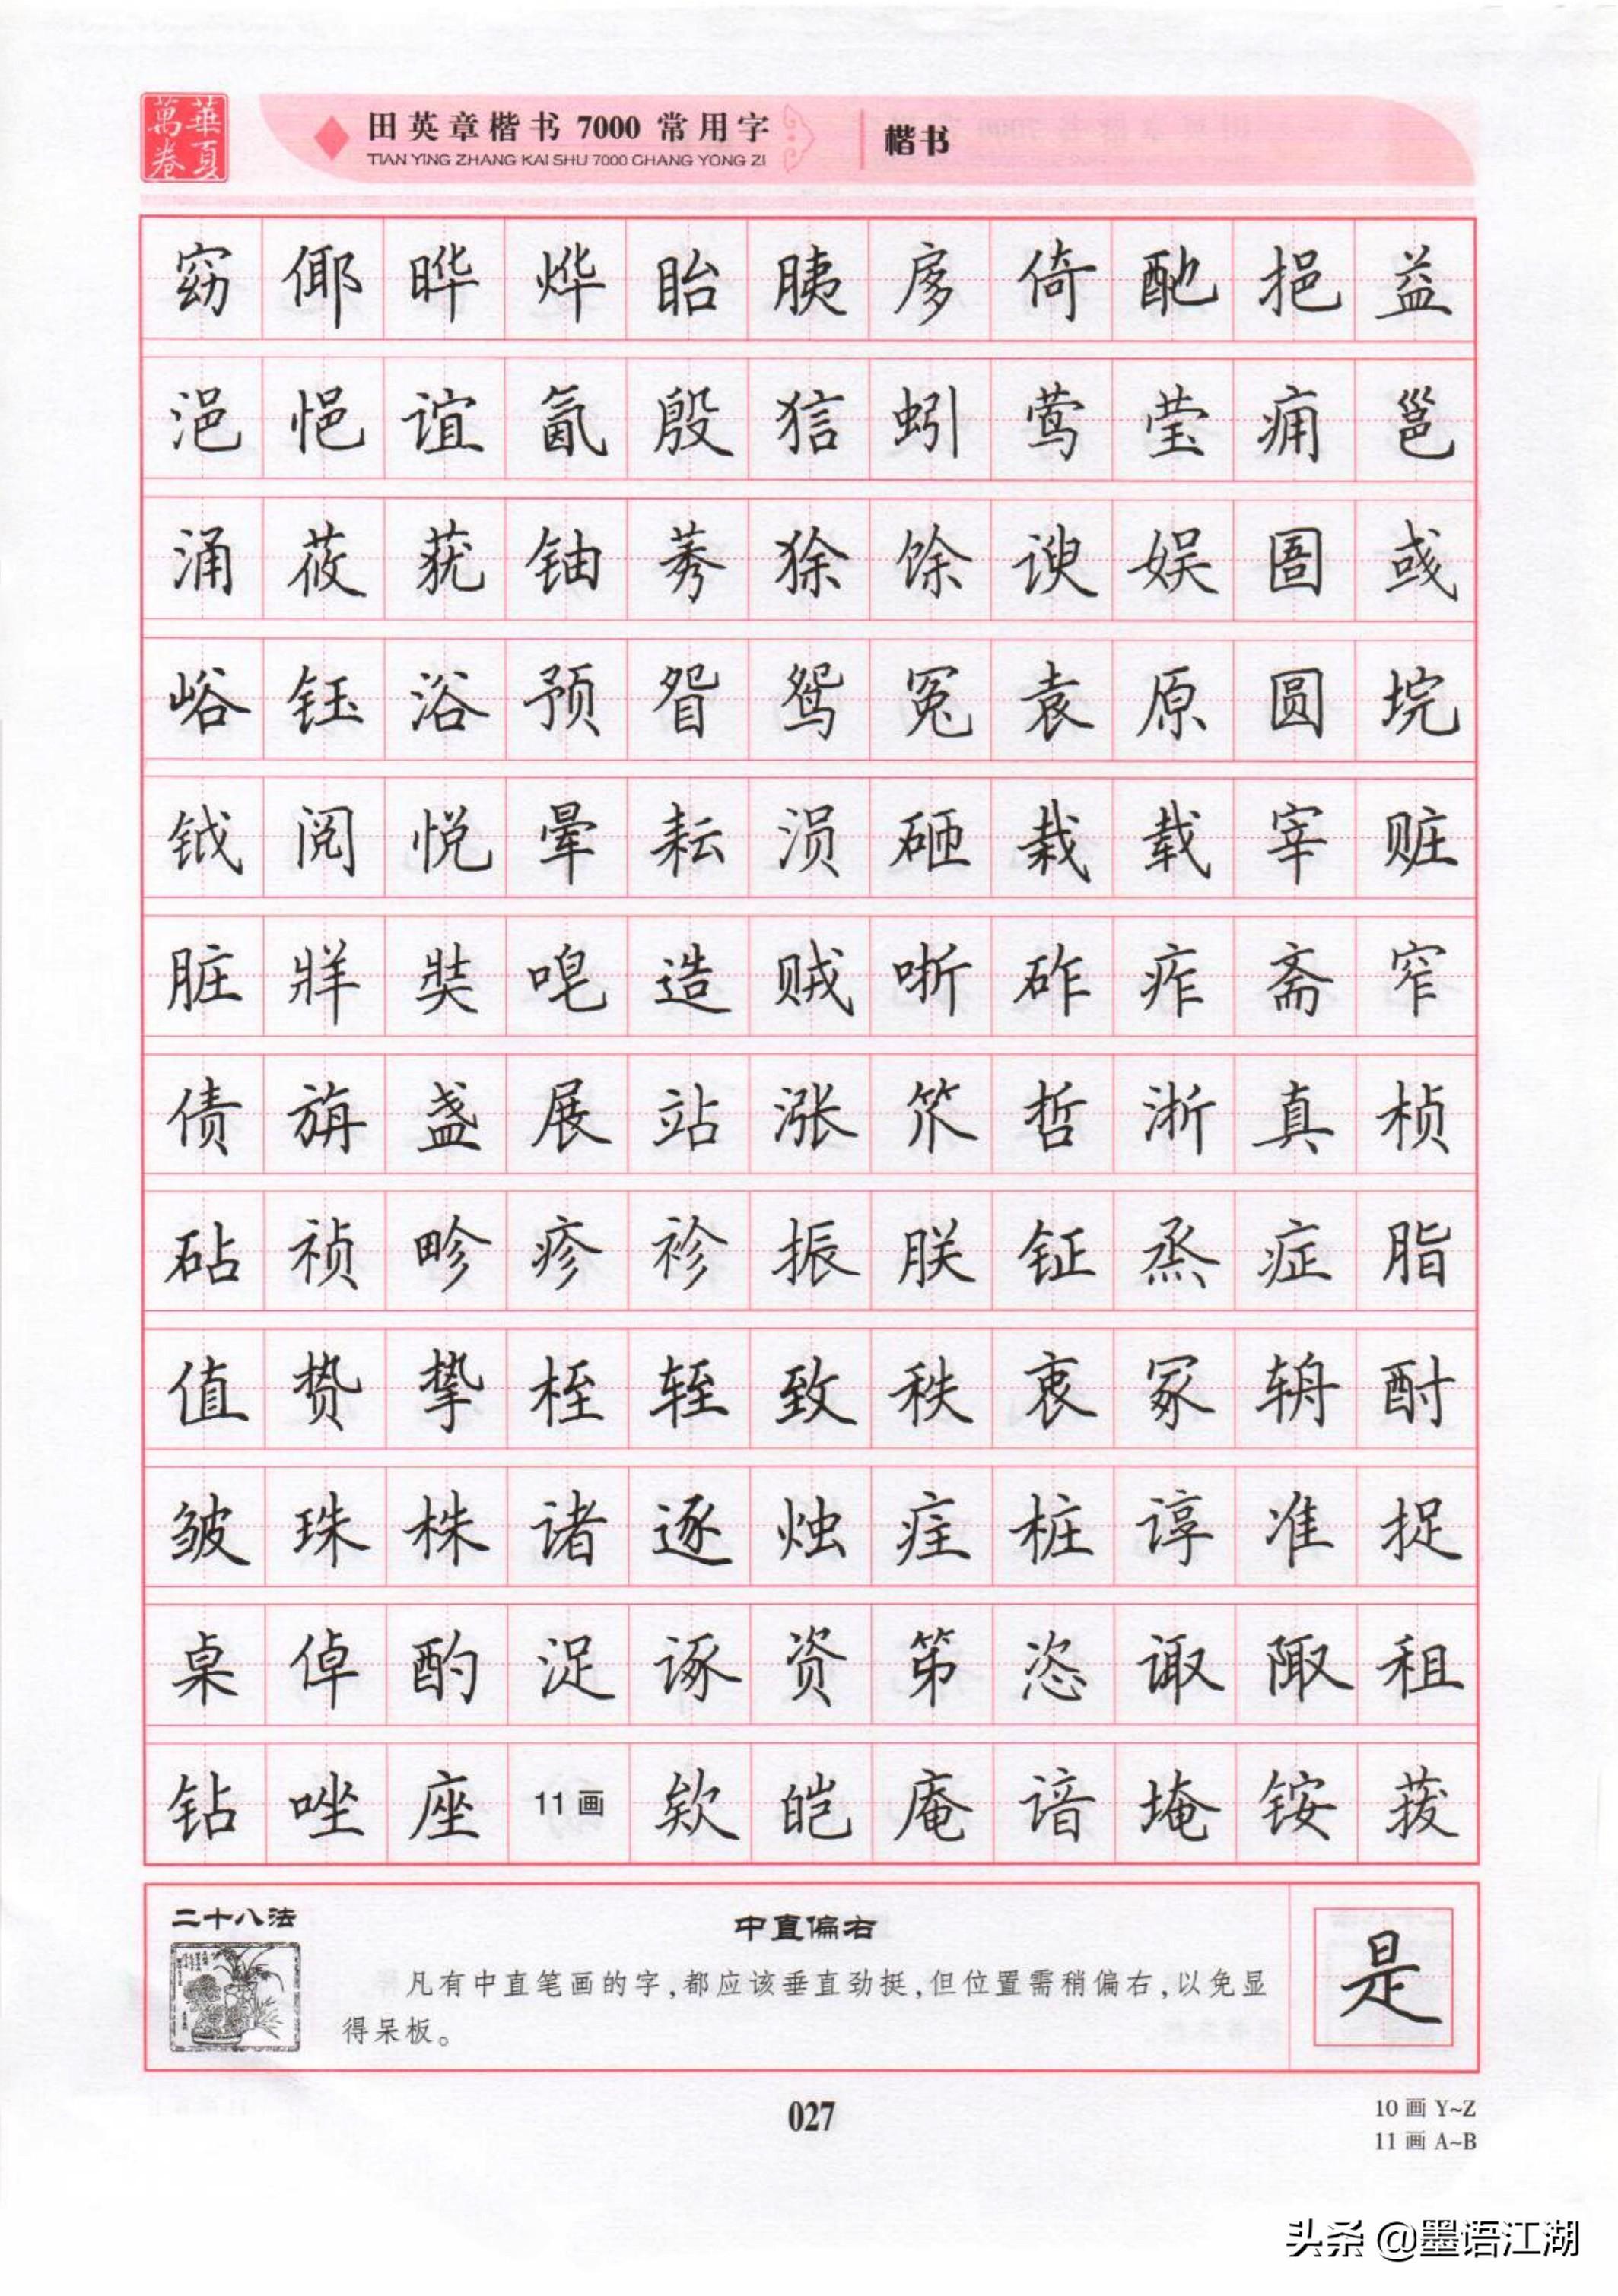 華夏
萬卷
田英章楷书 7000 常用字
TIAN YING ZHANG KAI SHU 7000 CHANG YONG ZI
楷书
窈 倻 晔 烨 眙 胰 扅 倚 酏 挹 益
浥 悒 谊 氤 殷 狺 蚓 莺 莹 痈 邕
涌 莜 莸 铀 莠 狳 馀 谀 娱 圄 彧
峪 钰 浴 预 眢 鸳 冤 袁 原 圆 垸
钺 阅 悦 晕 耘 涢 砸 栽 载 宰 赃
脏 牂 奘 唣 造 贼 哳 砟 痄 斋 窄
债 旃 盏 展 站 涨 笊 哲 浙 真 桢
砧 祯 畛 疹 袗 振 朕 钲 烝 症 脂
值 贽 挚 桎 轾 致 秩 衷 冢 辀 酎
皱 珠 株 诸 逐 烛 疰 桩 谆 准 捉
桌 倬 酌 浞 诼 资 笫 恣 诹 陬 租
钻 唑 座 11 画 欸 皑 庵 谙 埯 铵 菝
二十八法
中直偏右
凡有中直笔画的字,都应该垂直劲挺,但位置需稍偏右,以免显
得呆板。
是
027
10 画 Y~Z
11 画 A~B
头条 @墨语江湖